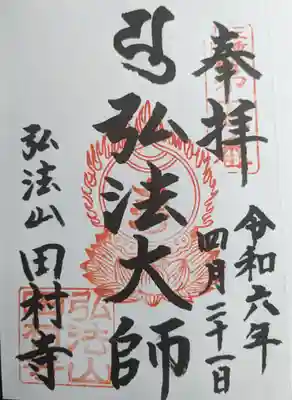 奉拝
令和六年
四月二十一日
弘法大師
弘法山 田村寺
弘法山
田村寺